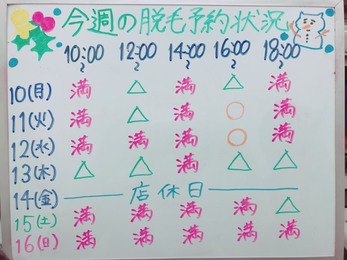 今週の脱毛予約状況
10:00 12:00 14:00 16:00 18:00
~ ~ ~ ~ ~
10(月) 満 △ 満 △ 満
11(火) 満 △ 満 ○ 満
12(水) 満 満 満 ○ 満
13(木) △ △ 満 △ △
14(金) 店休日
15(土) 満 満 満 満 △
16(日) 満 満 満 満 満